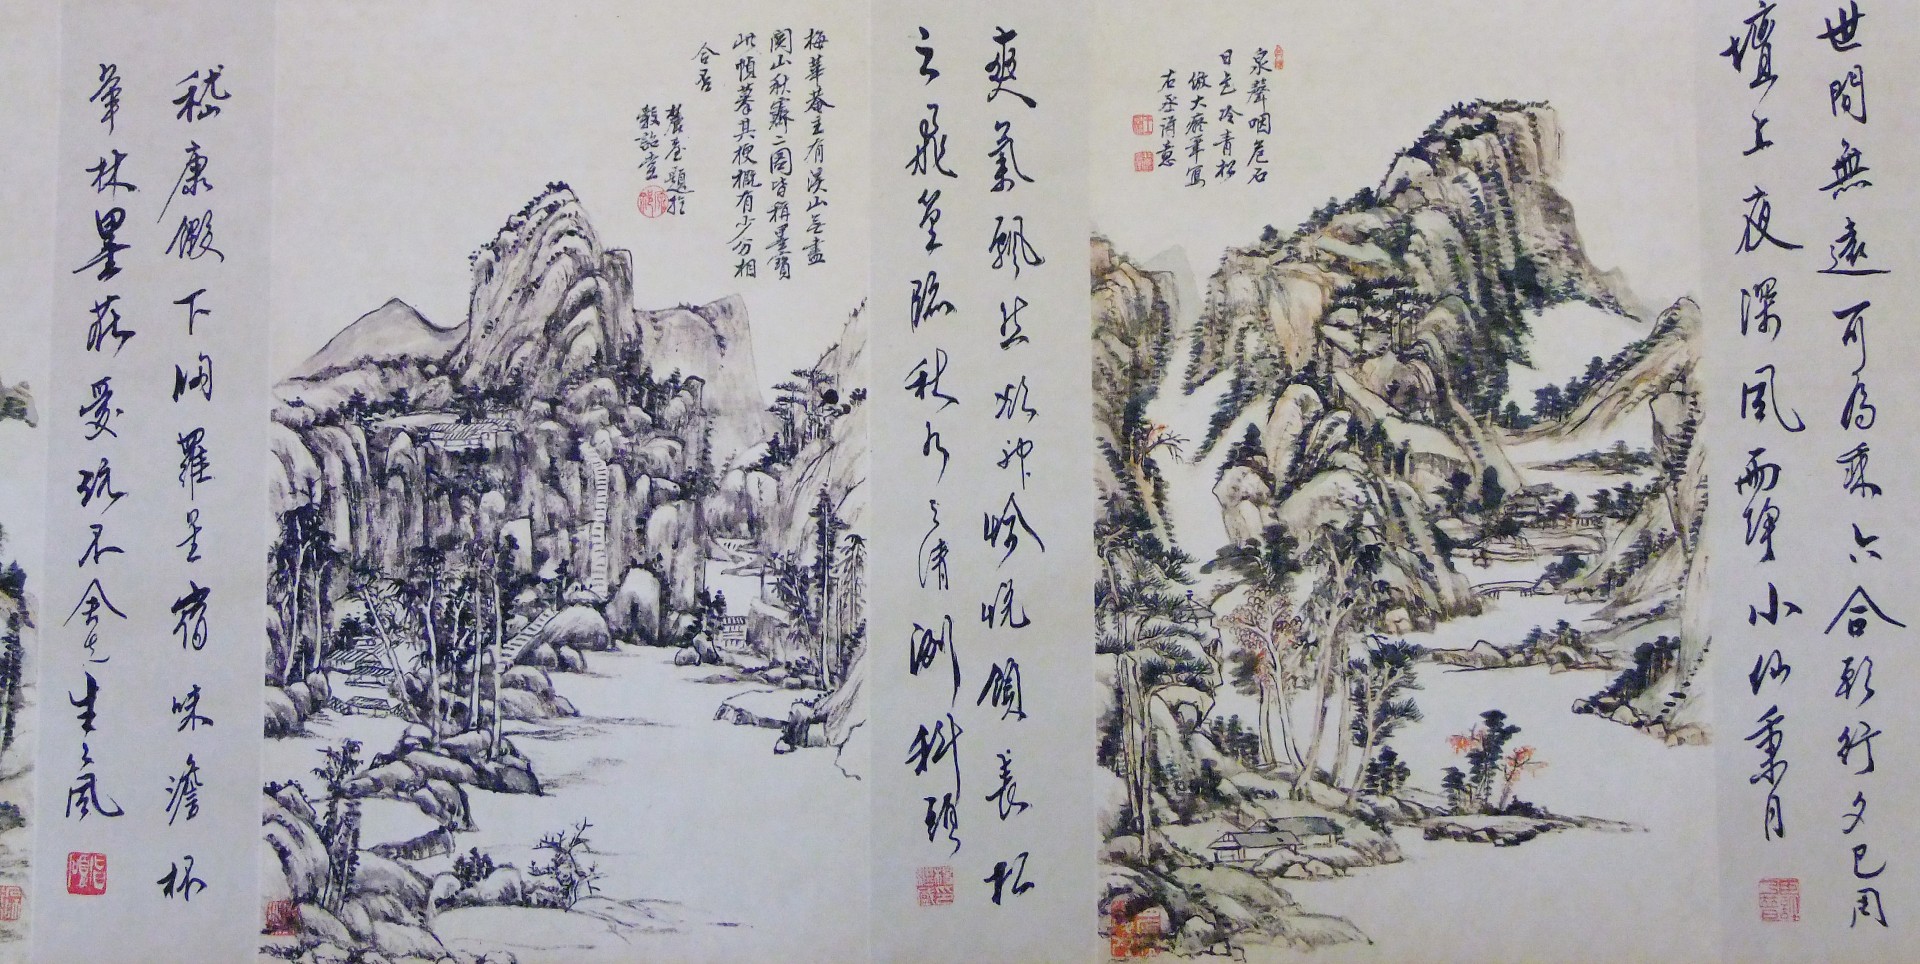 世間無遠可為乘六合朝行夕已周
壇上夜深風雨靜小仙乘月
泉聲咽危石
日色冷青松
倣大癡筆寫
右丞詩意
爽氣飄然欲神恰恍傾長松
之飛皇臨秋水之清洌科頭
梅華菴主有溪山無盡
關山秋霽二圖皆稱墨寶
此幀摹其梗概有少分相
合否
麓臺題於
穀詒堂
嵇康假下網羅星宿味澹杯
筆林墨莊愛玩不舍先生之風